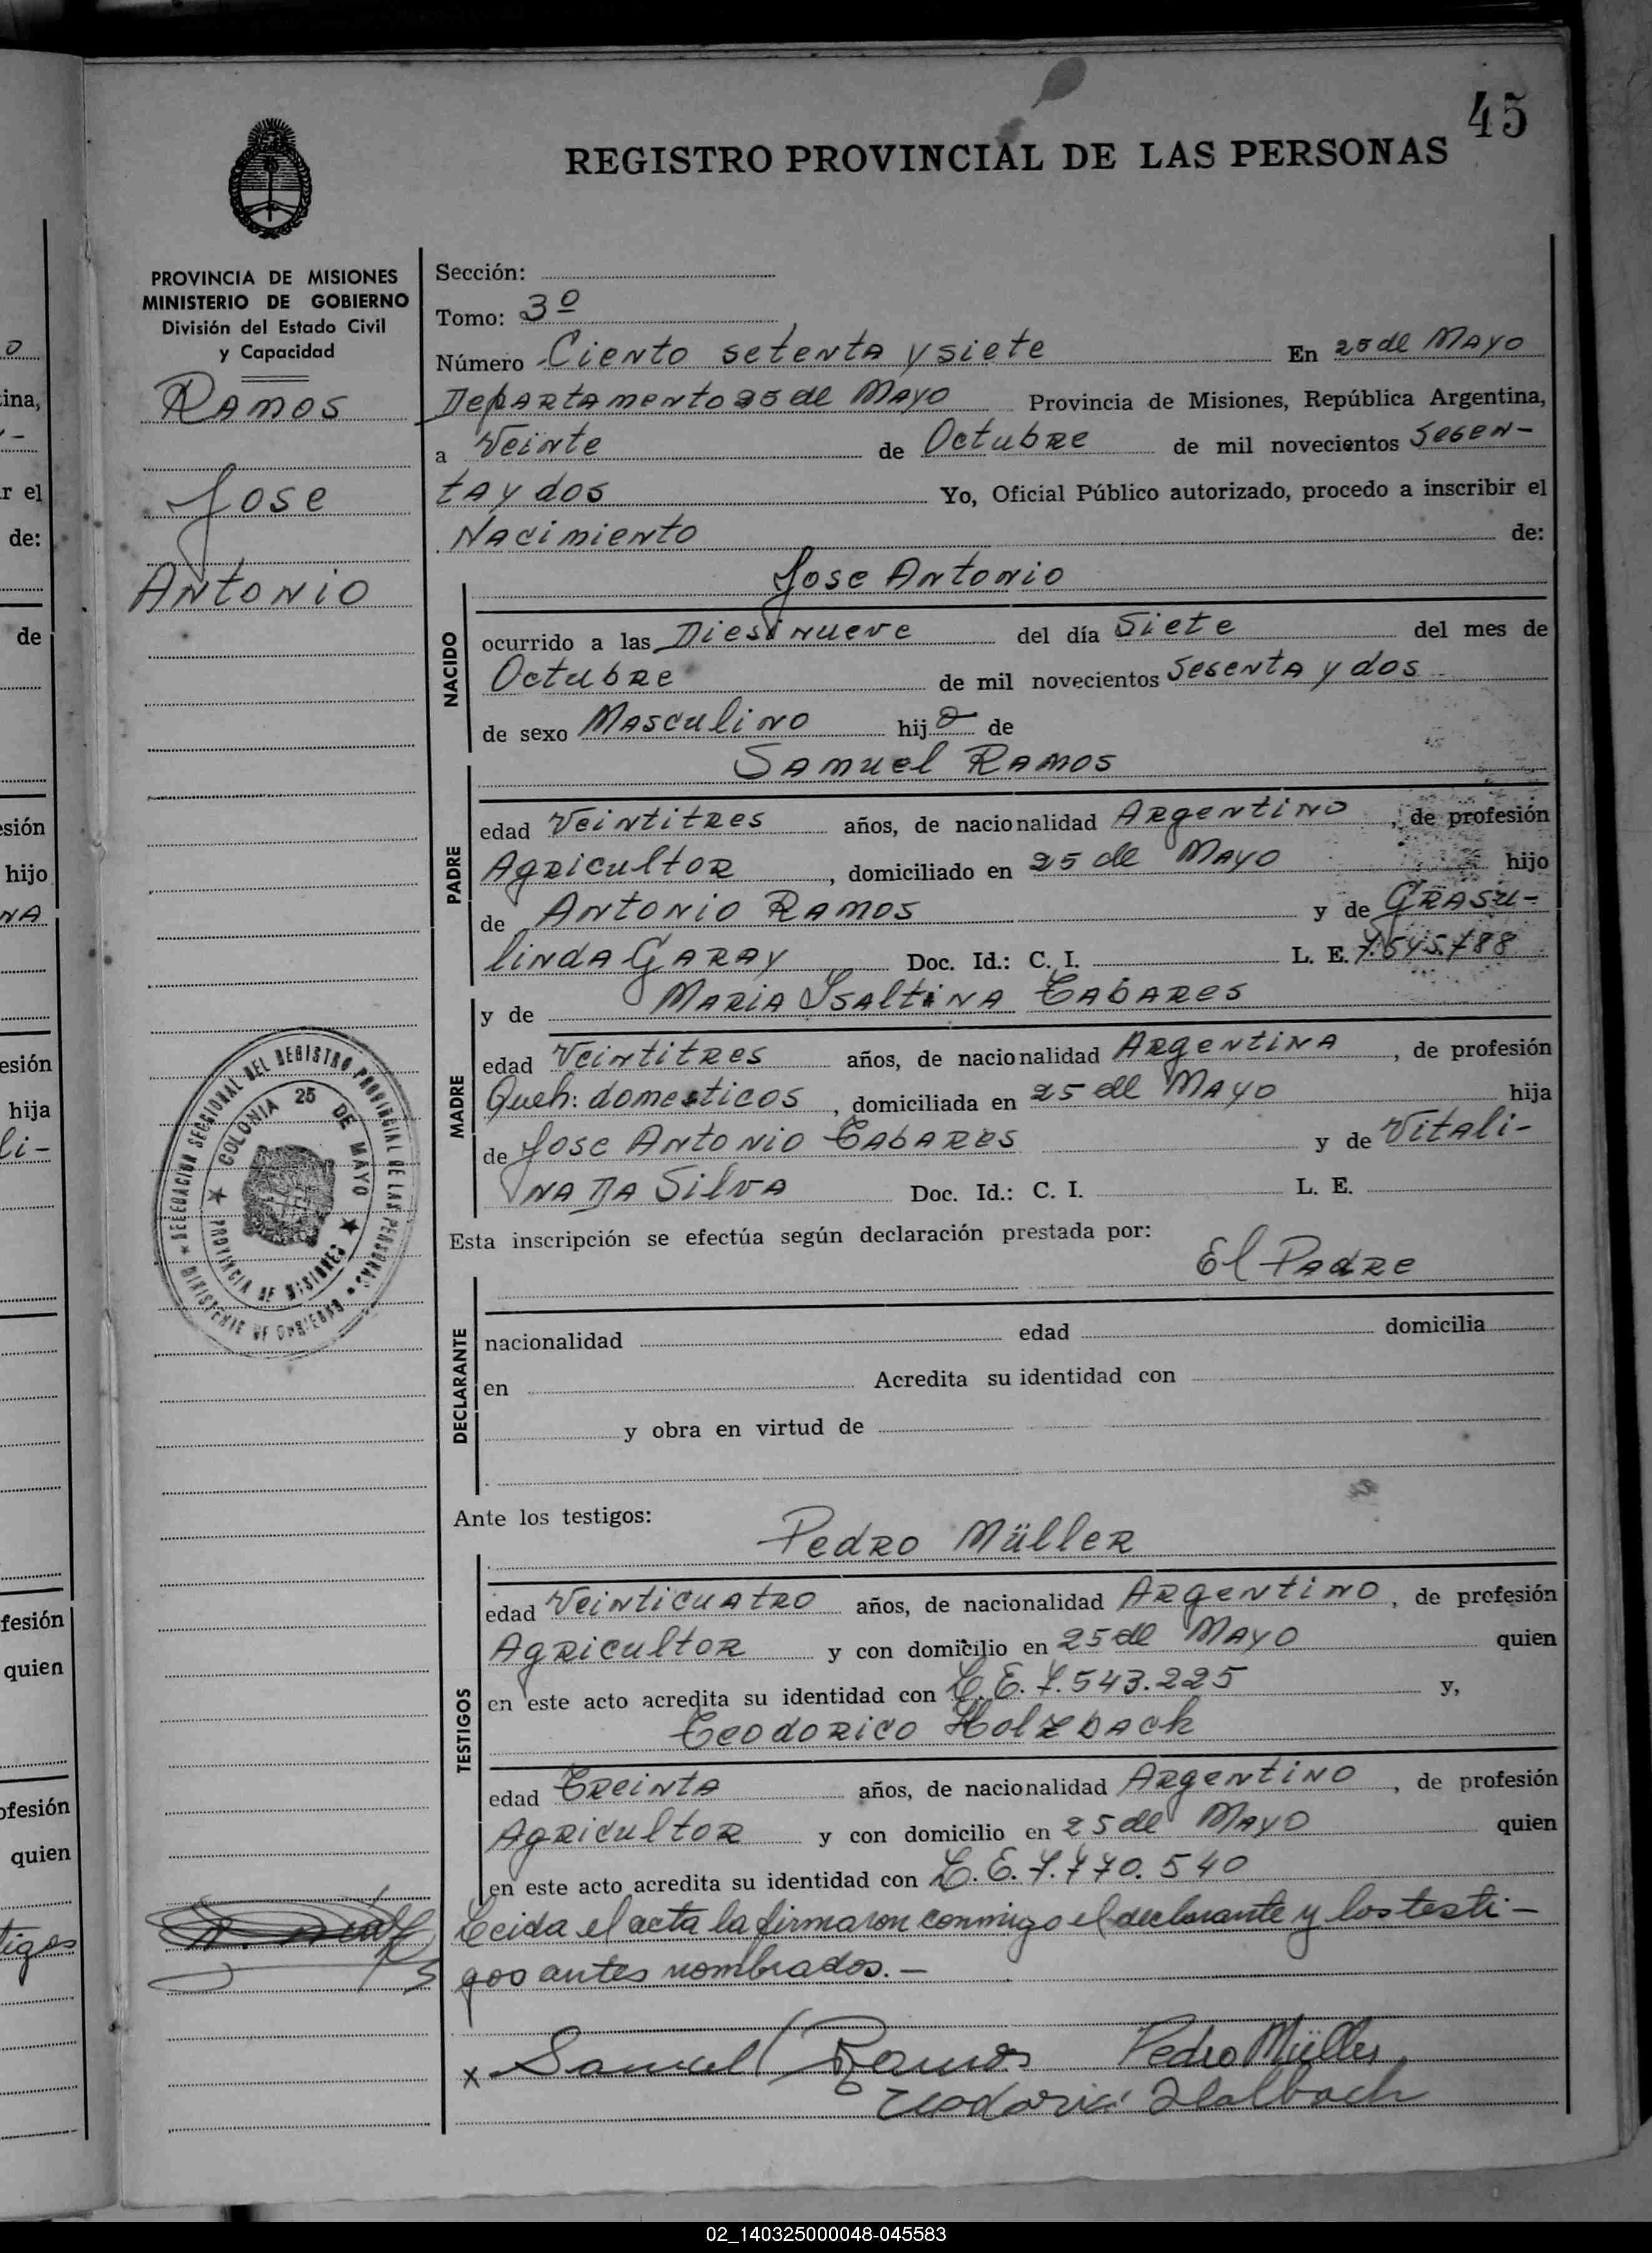 45
REGISTRO PROVINCIAL DE LAS PERSONAS
PROVINCIA DE MISIONES
MINISTERIO DE GOBIERNO
División del Estado Civil
y Capacidad
Ramos
Jose
Antonio
Sección:
Tomo: 3º
Número Ciento setenta y siete En 25 de Mayo
Departamento 25 de Mayo Provincia de Misiones, República Argentina,
a Veinte de Octubre de mil novecientos Sesen-
ta y dos Yo, Oficial Público autorizado, procedo a inscribir el
Nacimiento de:
Jose Antonio
NACIDO
ocurrido a las Diesinueve del día Siete del mes de
Octubre de mil novecientos Sesenta y dos
de sexo Masculino hijo de
Samuel Ramos
PADRE
edad Veintitres años, de nacionalidad Argentino, de profesión
Agricultor, domiciliado en 25 de Mayo hijo
de Antonio Ramos y de Grasu-
linda Garay Doc. Id.: C. I. L. E. 7.545.788
y de Maria Isaltina Tabares
MADRE
edad Veintitres años, de nacionalidad Argentina, de profesión
Queh: domesticos, domiciliada en 25 de Mayo hija
de Jose Antonio Tabares y de Vitali-
na Da Silva Doc. Id.: C. I. L. E.
Esta inscripción se efectúa según declaración prestada por:
El Padre
DECLARANTE
nacionalidad edad domicilia
en Acredita su identidad con
y obra en virtud de
Ante los testigos:
Pedro Müller
TESTIGOS
edad Veinticuatro años, de nacionalidad Argentino, de profesión
Agricultor y con domicilio en 25 de Mayo quien
en este acto acredita su identidad con L. E. 7.543.225 y,
Teodorico Holzbach
edad Treinta años, de nacionalidad Argentino, de profesión
Agricultor y con domicilio en 25 de Mayo quien
en este acto acredita su identidad con L. E. 7.470.540
Leida el acta la firmaron conmigo el declarante y los testi-
gos antes nombrados.-
x Samuel Ramos Pedro Müller
Teodorico Holbach
DELEGACION SECCIONAL DEL REGISTRO PROVINCIAL DE LAS PERSONAS
MINISTERIO DE GOBIERNO
COLONIA 25 DE MAYO
PROVINCIA DE MISIONES
02_140325000048-045583